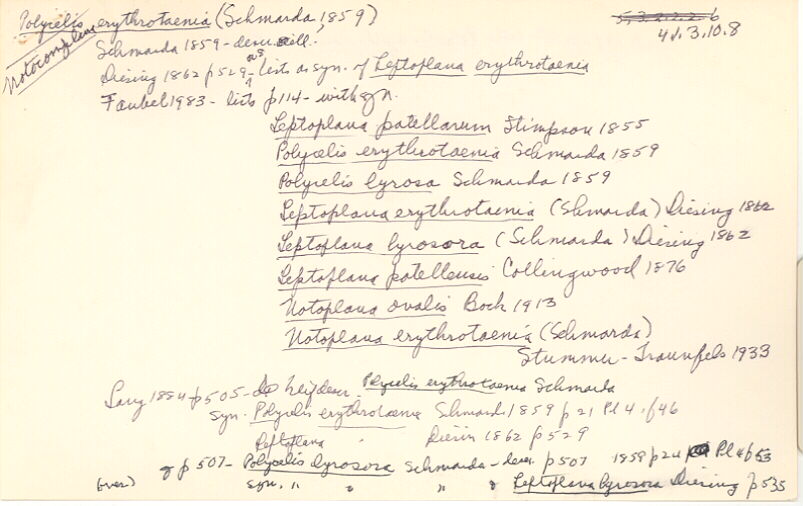 Polycelis erythrotaenia (Schmarda, 1859)
5.3.2.2.2.6
Notocomplana
41.3.10.8
Schmarda 1859 - descr. ill.
Diesing 1862 p 529 - lists as syn. of Leptoplana erythrotaenia
Faubel 1983 - lists p 114 - with syn.
Leptoplana patellarum Stimpson 1855
Polycelis erythrotaenia Schmarda 1859
Polycelis lyrosa Schmarda 1859
Leptoplana erythrotaenia (Shmarda) Diesing 1862
Leptoplana lyrosora (Schmarda) Diesing 1862
Leptoplana patellensis Collingwood 1876
Notoplana ovalis Bock 1913
Notoplana erythrotaenia (Schmarda)
Stummer-Traunfels 1933
Lang 1884 p 505 - Polycelis erythrotaenia Schmarda
Syn. Polycelis erythrotaenia Schmarda 1859 p 21 Pl 4 f 46
Leptoplana " Diesin 1862 p 529
p 507 - Polycelis lyrosora Schmarda - descr. p 507 1859 p 24 Pl 4 f 53
(over) syn. " " " Leptoplana lyrosora Diesing p 535